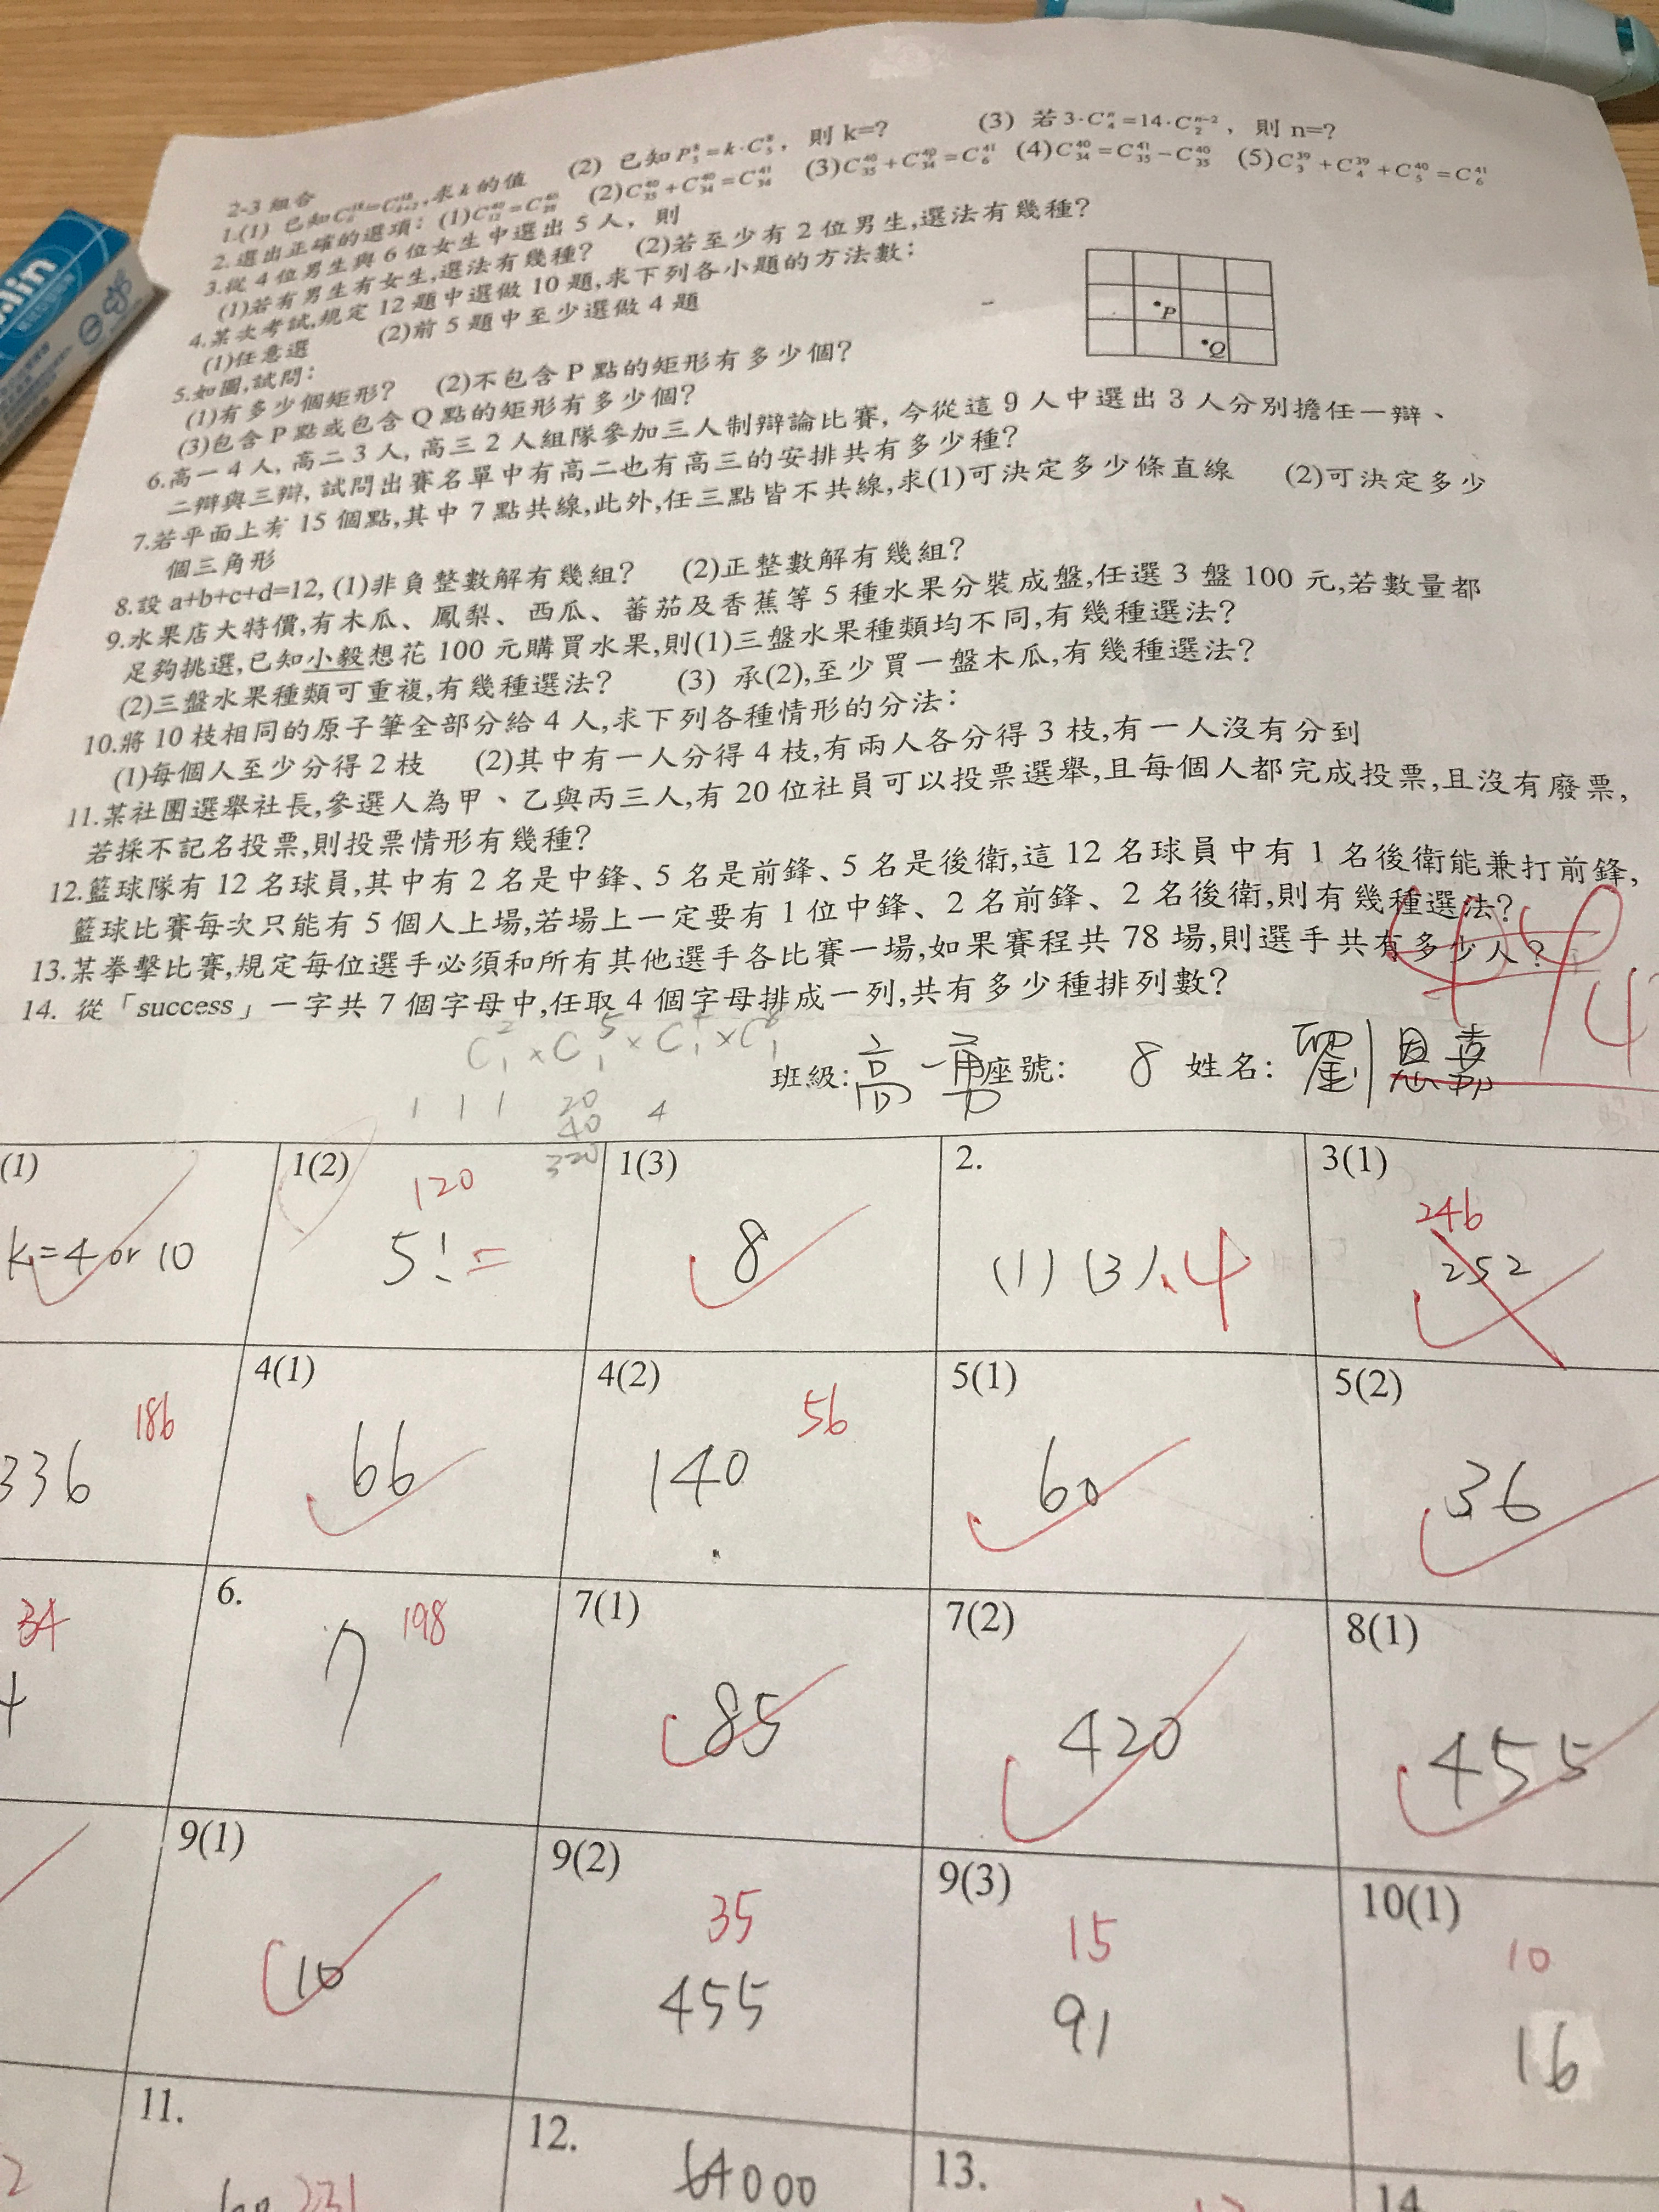 2-3 組合
1.(1) 已知 ，求k的值 (2) 已知 P⁸₅=k·C⁸₅，則 k=? (3) 若 3·Cⁿ₄=14·Cⁿ⁻²₂，則 n=?
2.選出正確的選項：(1) (2)C⁴⁰₃₅+C⁴⁰₃₄=C⁴¹₃₄ (3)C⁴⁰₃₅+C⁴⁰₃₄=C⁴¹₆ (4)C⁴⁰₃₄=C⁴¹₃₅−C⁴⁰₃₅ (5)C³⁹₃+C³⁹₄+C⁴⁰₅=C⁴¹₆
3.從 4 位男生與 6 位女生中選出 5 人，則
(1)若有男生有女生,選法有幾種? (2)若至少有 2 位男生,選法有幾種?
4.某次考試,規定 12 題中選做 10 題,求下列各小題的方法數：
(1)任意選 (2)前 5 題中至少選做 4 題
5.如圖,試問：
(1)有多少個矩形? (2)不包含 P 點的矩形有多少個?
(3)包含 P 點或包含 Q 點的矩形有多少個?
P
Q
6.高一 4 人, 高二 3 人, 高三 2 人組隊參加三人制辯論比賽, 今從這 9 人中選出 3 人分別擔任一辯、
二辯與三辯, 試問出賽名單中有高二也有高三的安排共有多少種?
7.若平面上有 15 個點,其中 7 點共線,此外,任三點皆不共線,求(1)可決定多少條直線 (2)可決定多少
個三角形
8.設 a+b+c+d=12, (1)非負整數解有幾組? (2)正整數解有幾組?
9.水果店大特價,有木瓜、鳳梨、西瓜、蕃茄及香蕉等 5 種水果分裝成盤,任選 3 盤 100 元,若數量都
足夠挑選,已知小毅想花 100 元購買水果,則(1)三盤水果種類均不同,有幾種選法?
(2)三盤水果種類可重複,有幾種選法? (3) 承(2),至少買一盤木瓜,有幾種選法?
10.將 10 枝相同的原子筆全部分給 4 人,求下列各種情形的分法：
(1)每個人至少分得 2 枝 (2)其中有一人分得 4 枝,有兩人各分得 3 枝,有一人沒有分到
11.某社團選舉社長,參選人為甲、乙與丙三人,有 20 位社員可以投票選舉,且每個人都完成投票,且沒有廢票,
若採不記名投票,則投票情形有幾種?
12.籃球隊有 12 名球員,其中有 2 名是中鋒、5 名是前鋒、5 名是後衛,這 12 名球員中有 1 名後衛能兼打前鋒,
籃球比賽每次只能有 5 個人上場,若場上一定要有 1 位中鋒、2 名前鋒、2 名後衛,則有幾種選法?
13.某拳擊比賽,規定每位選手必須和所有其他選手各比賽一場,如果賽程共 78 場,則選手共有多少人?
14. 從「success」一字共 7 個字母中,任取 4 個字母排成一列,共有多少種排列數?
班級: 高一勇 座號: 8 姓名: 劉恩嘉
1 1 1 20 4
40
320
(1) 1(2) 1(3) 2. 3(1)
120 246
k=4 or 10 5! = 8 (1) (3).4 252
4(1) 4(2) 5(1) 5(2)
186 56
336 66 140 60 36
6. 7(1) 7(2) 8(1)
34 198
4 ? 85 420 455
9(1) 9(2) 9(3) 10(1)
35 15 10
10 455 91 16
11. 12. 13. 14
2 231 64000